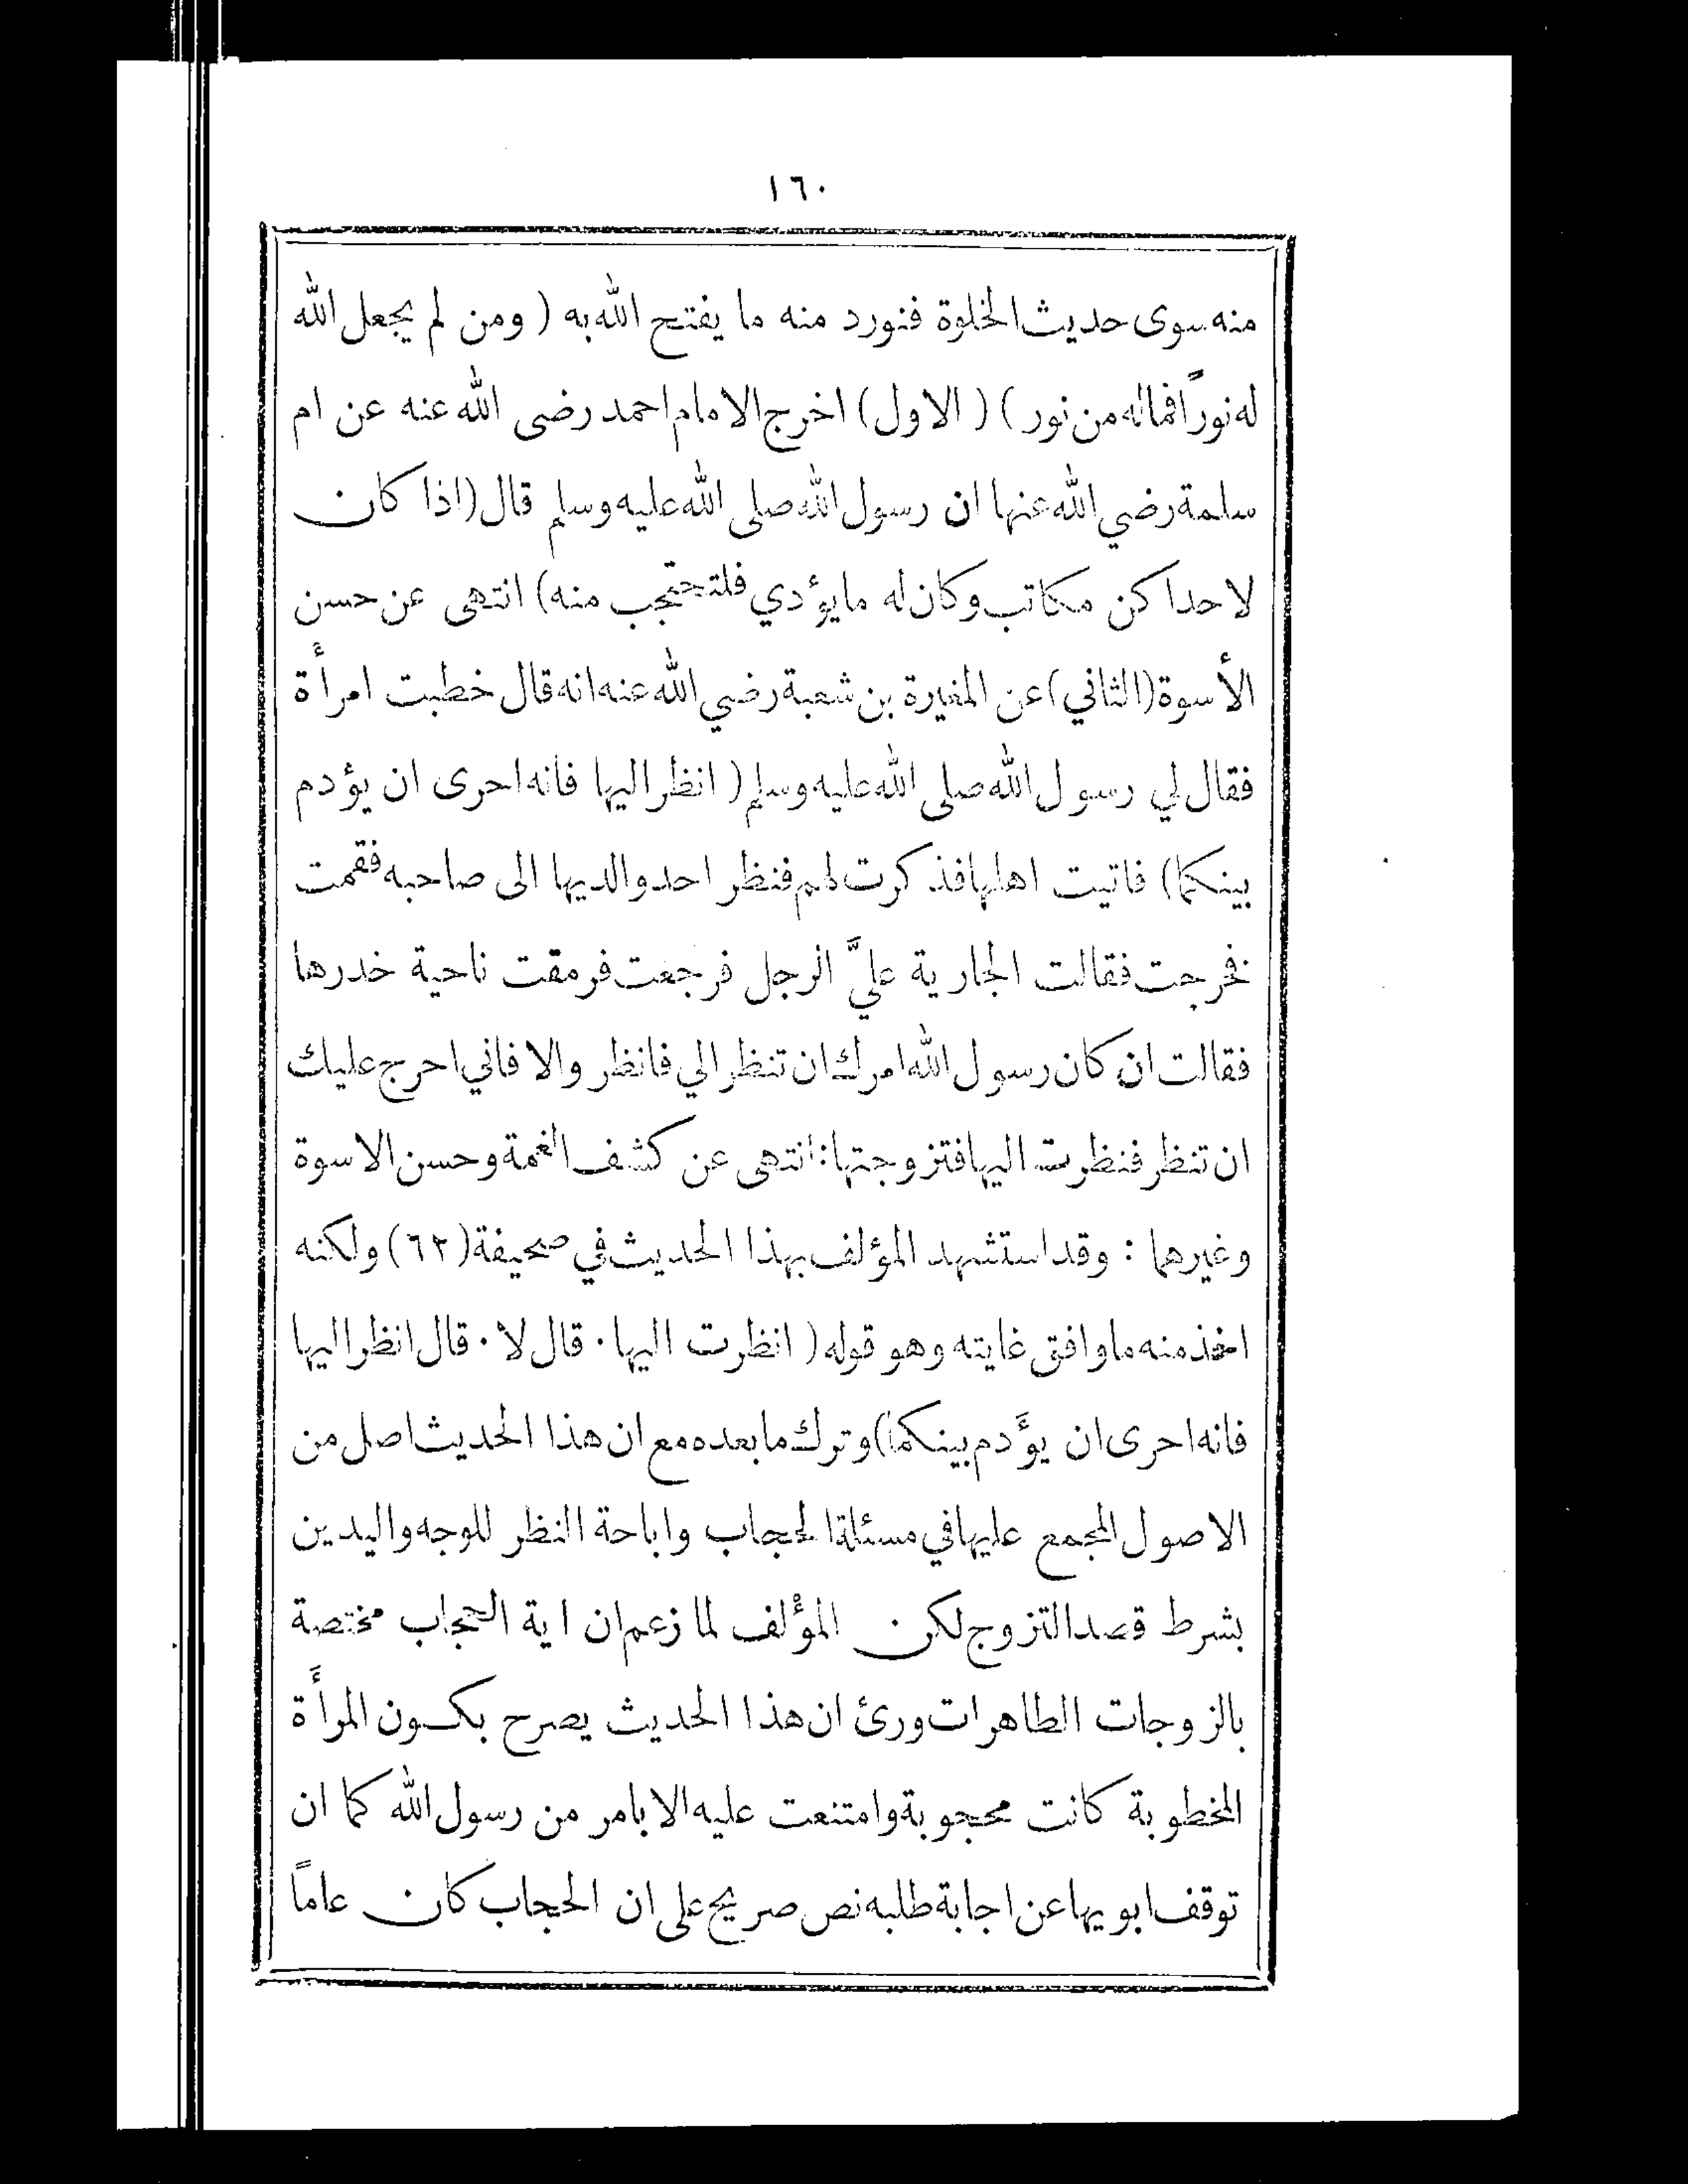 ١٦٠
منه سوى حديث الخلوة فنورد منه ما يفتح الله به ( ومن لم يجعل الله
له نوراً فماله من نور ) ( الاول ) اخرج الامام احمد رضى الله عنه عن ام
سلمة رضي الله عنها ان رسول الله صلى الله عليه وسلم قال (اذا كان
لاحداكن مكاتب وكان له ما يؤدي فلتحتجب منه) انتهى عن حسن
الأسوة (الثاني) عن المغيرة بن شعبة رضي الله عنه انه قال خطبت امرأة
فقال لي رسول الله صلى الله عليه وسلم ( انظر اليها فانه احرى ان يؤدم
بينكما) فاتيت اهلها فذكرت لهم فنظر احد والديها الى صاحبه فقمت
فخرجت فقالت الجارية عليَّ الرجل فرجعت فرمقت ناحية خدرها
فقالت ان كان رسول الله امرك ان تنظر الي فانظر والا فاني احرج عليك
ان تنظر فنظرت اليها فتزوجتها : انتهى عن كشف الغمة وحسن الاسوة
وغيرهما : وقد استشهد المؤلف بهذا الحديث في صحيفة (٦٣) ولكنه
اخذ منه ما وافق غايته وهو قوله ( انظرت اليها . قال لا . قال انظر اليها
فانه احرى ان يؤَدم بينكما) وترك ما بعده مع ان هذا الحديث اصل من
الاصول المجمع عليها في مسئلة الحجاب واباحة النظر للوجه واليدين
بشرط قصد التزوج لكن المؤلف لما زعم ان اية الحجاب مختصة
بالزوجات الطاهرات ورئ ان هذا الحديث يصرح بكون المرأة
المخطوبة كانت محجوبة وامتنعت عليه الا بامر من رسول الله كما ان
توقف ابويها عن اجابة طلبه نص صريح على ان الحجاب كان عاماً